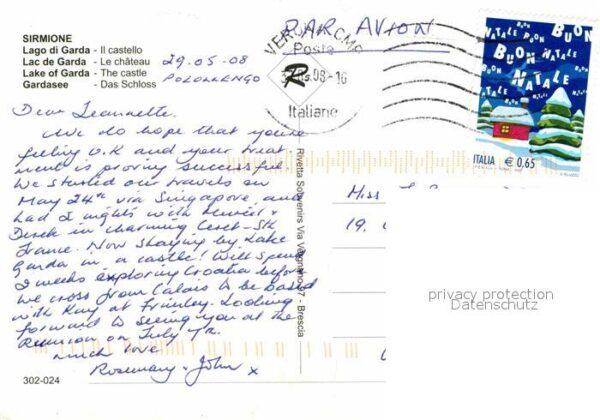 SIRMIONE
Lago di Garda - Il castello
Lac de Garda - Le château
Lake of Garda - The castle
Gardasee - Das Schloss
29.05-08
POZOLENGO
PAR AVION
VERONA CMP
Poste
.08-16
Italiane
BUON NATALE
ITALIA € 0,65
Dear Jeannette.
We do hope that you're
feeling O.K and your treat
ment is proving successful.
We started our travels on
May 24th via Singapore, and
had 2 nights with Muriel &
Derek in charming Ceret-Sth
France. Now staying by Lake
Garda in a castle! Will spend
2 weeks exploring Croatia before
we cross from Calais to be based
with Ray at Frimley. Looking
forward to seeing you at the
Reunion on July 7th.
much love
Rosemary & John x
Rivetta Souvenirs Via - Brescia
Miss
19.
privacy protection
Datenschutz
302-024